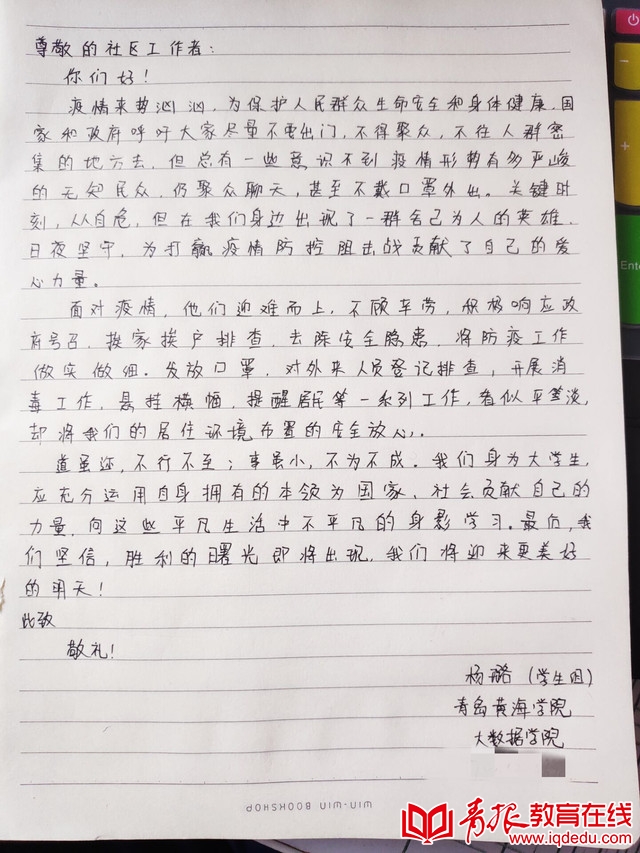 尊敬的社区工作者:
你们好!
疫情来势汹汹,为保护人民群众生命安全和身体健康,国
家和政府呼吁大家尽量不要出门,不得聚众,不往人群密
集的地方去,但总有一些意识不到疫情形势有多严峻
的无知民众,仍聚众聊天,甚至不戴口罩外出。关键时
刻,人人自危,但在我们身边出现了一群舍己为人的英雄,
日夜坚守,为打赢疫情防控阻击战贡献了自己的爱
心力量。
面对疫情,他们迎难而上,不顾辛劳,积极响应政
府号召,挨家挨户排查,去除安全隐患,将防疫工作
做实做细。发放口罩,对外来人员登记排查,开展消
毒工作,悬挂横幅,提醒居民等一系列工作,看似平淡,
却将我们的居住环境布置的安全放心。
道虽迩,不行不至;事虽小,不为不成。我们身为大学生,
应充分运用自身拥有的本领为国家、社会贡献自己的
力量,向这些平凡生活中不平凡的身影学习。最后,我
们坚信,胜利的曙光即将出现,我们将迎来更美好
的明天!
此致
敬礼!
杨璐(学生团)
青岛黄海学院
大数据学院
WIN-WIN BOOKSHOP
Enter
青报教育在线
www.iqdedu.com